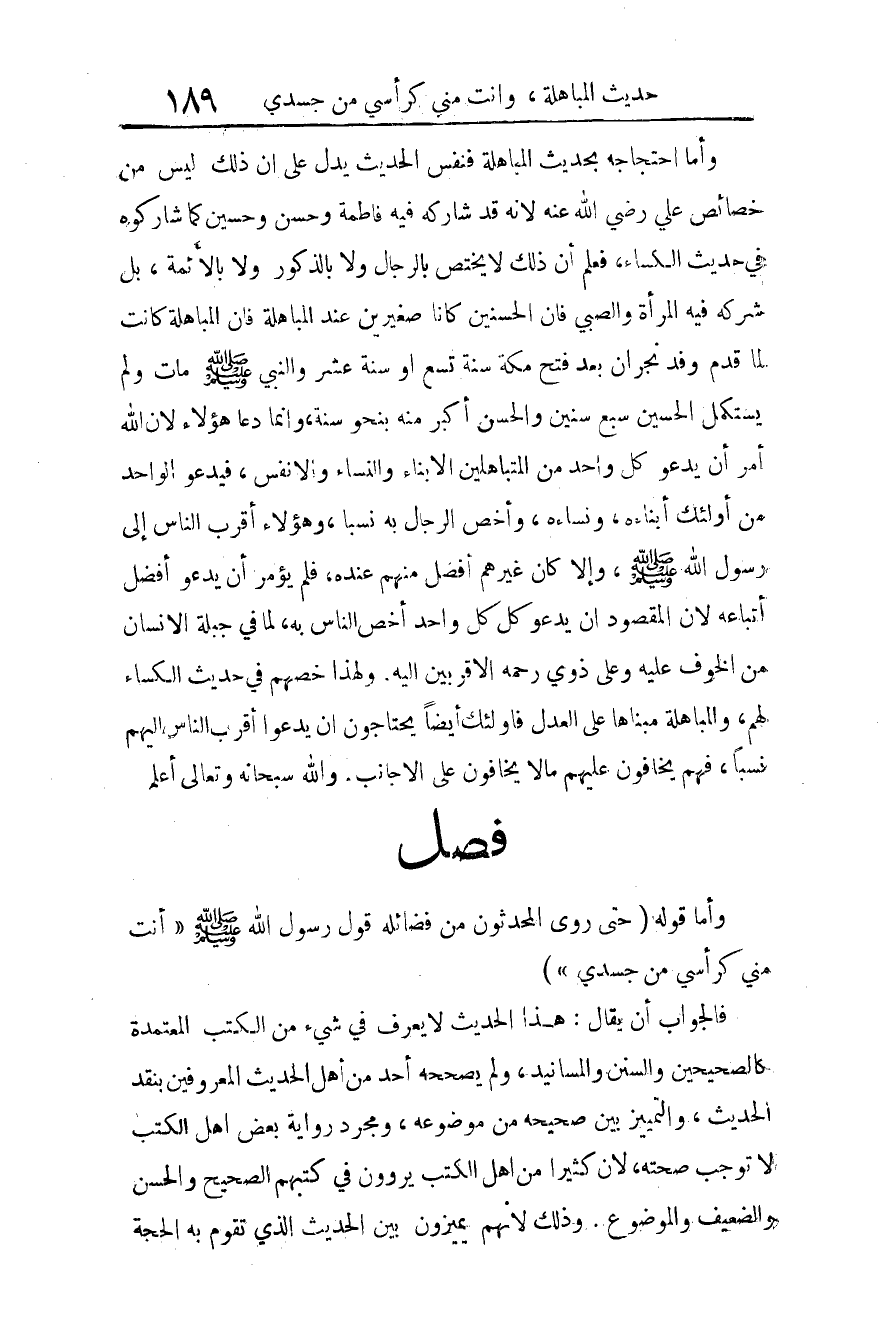 حديث المباهلة ، وانت مني كرأسي من جسدي ١٨٩
وأما احتجاجه بحديث المباهلة فنفس الحديث يدل على ان ذلك ليس من
خصائص علي رضي الله عنه لانه قد شاركه فيه فاطمة وحسن وحسين كما شاركوه
في حديث الكساء، فعلم أن ذلك لا يختص بالرجال ولا بالذكور ولا بالأئمة ، بل
شركه فيه المرأة والصبي فان الحسنين كانا صغيرين عند المباهلة فان المباهلة كانت
لما قدم وفد نجران بعد فتح مكة سنة تسع او سنة عشر والنبي ﷺ مات ولم
يستكمل الحسين سبع سنين والحسن أكبر منه بنحو سنة، وانما دعا هؤلاء لان الله
أمر أن يدعو كل واحد من المتباهلين الابناء والنساء والانفس ، فيدعو الواحد
من أولئك أبناءه ، ونساءه ، وأخص الرجال به نسبا ، وهؤلاء أقرب الناس إلى
رسول الله ﷺ ، وإلا كان غيرهم أفضل منهم عنده، فلم يؤمر أن يدعو أفضل
أتباعه لان المقصود ان يدعو كل كل واحد أخص الناس به، لما في جبلة الانسان
من الخوف عليه وعلى ذوي رحمه الاقربين اليه. ولهذا خصهم في حديث الكساء
لهم، والمباهلة مبناها على العدل فاولئك أيضاً يحتاجون ان يدعوا أقرب الناس اليهم
نسباً ، فهم يخافون عليهم مالا يخافون على الاجانب . والله سبحانه وتعالى أعلم
فصل
وأما قوله ( حتى روى المحدثون من فضائله قول رسول الله ﷺ « أنت
مني كرأسي من جسدي » )
فالجواب أن يقال : هـذا الحديث لا يعرف في شيء من الكتب المعتمدة
كالصحيحين والسنن والمسانيد، ولم يصححه أحد من أهل الحديث المعروفين بنقد
الحديث ، والتمييز بين صحيحه من موضوعه ، ومجرد رواية بعض اهل الكتب
لا توجب صحته، لان كثيرا من اهل الكتب يروون في كتبهم الصحيح والحسن
والضعيف والموضوع . وذلك لأنهم يميزون بين الحديث الذي تقوم به الحجة